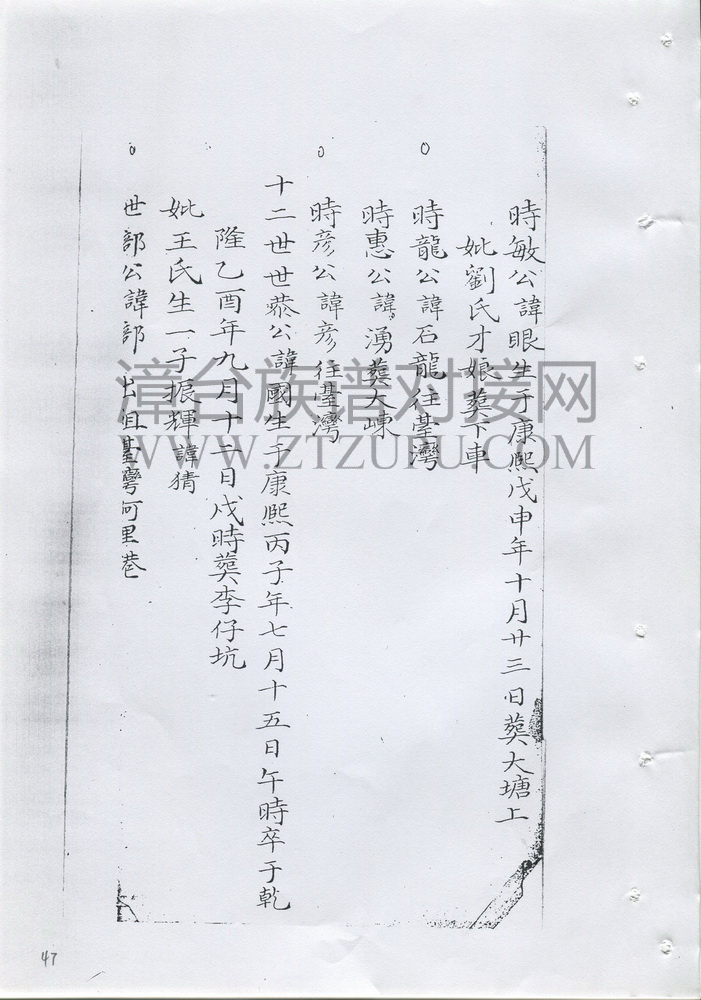 時敏公諱眼生于康熙戊申年十月廿三日葬大塘上
妣劉氏才娘葬下車
時龍公諱石龍往臺灣
時惠公諱湧葬大崠
時彥公諱彥往臺灣
十二世世恭公諱國生于康熙丙子年七月十五日午時卒于乾
隆乙酉年九月十二日戌時葬李仔坑
妣王氏生一子振輝諱猜
世部公諱部 出租臺彎阿里巷
漳台族谱对接网
WWW.ZTZUPU.COM
47